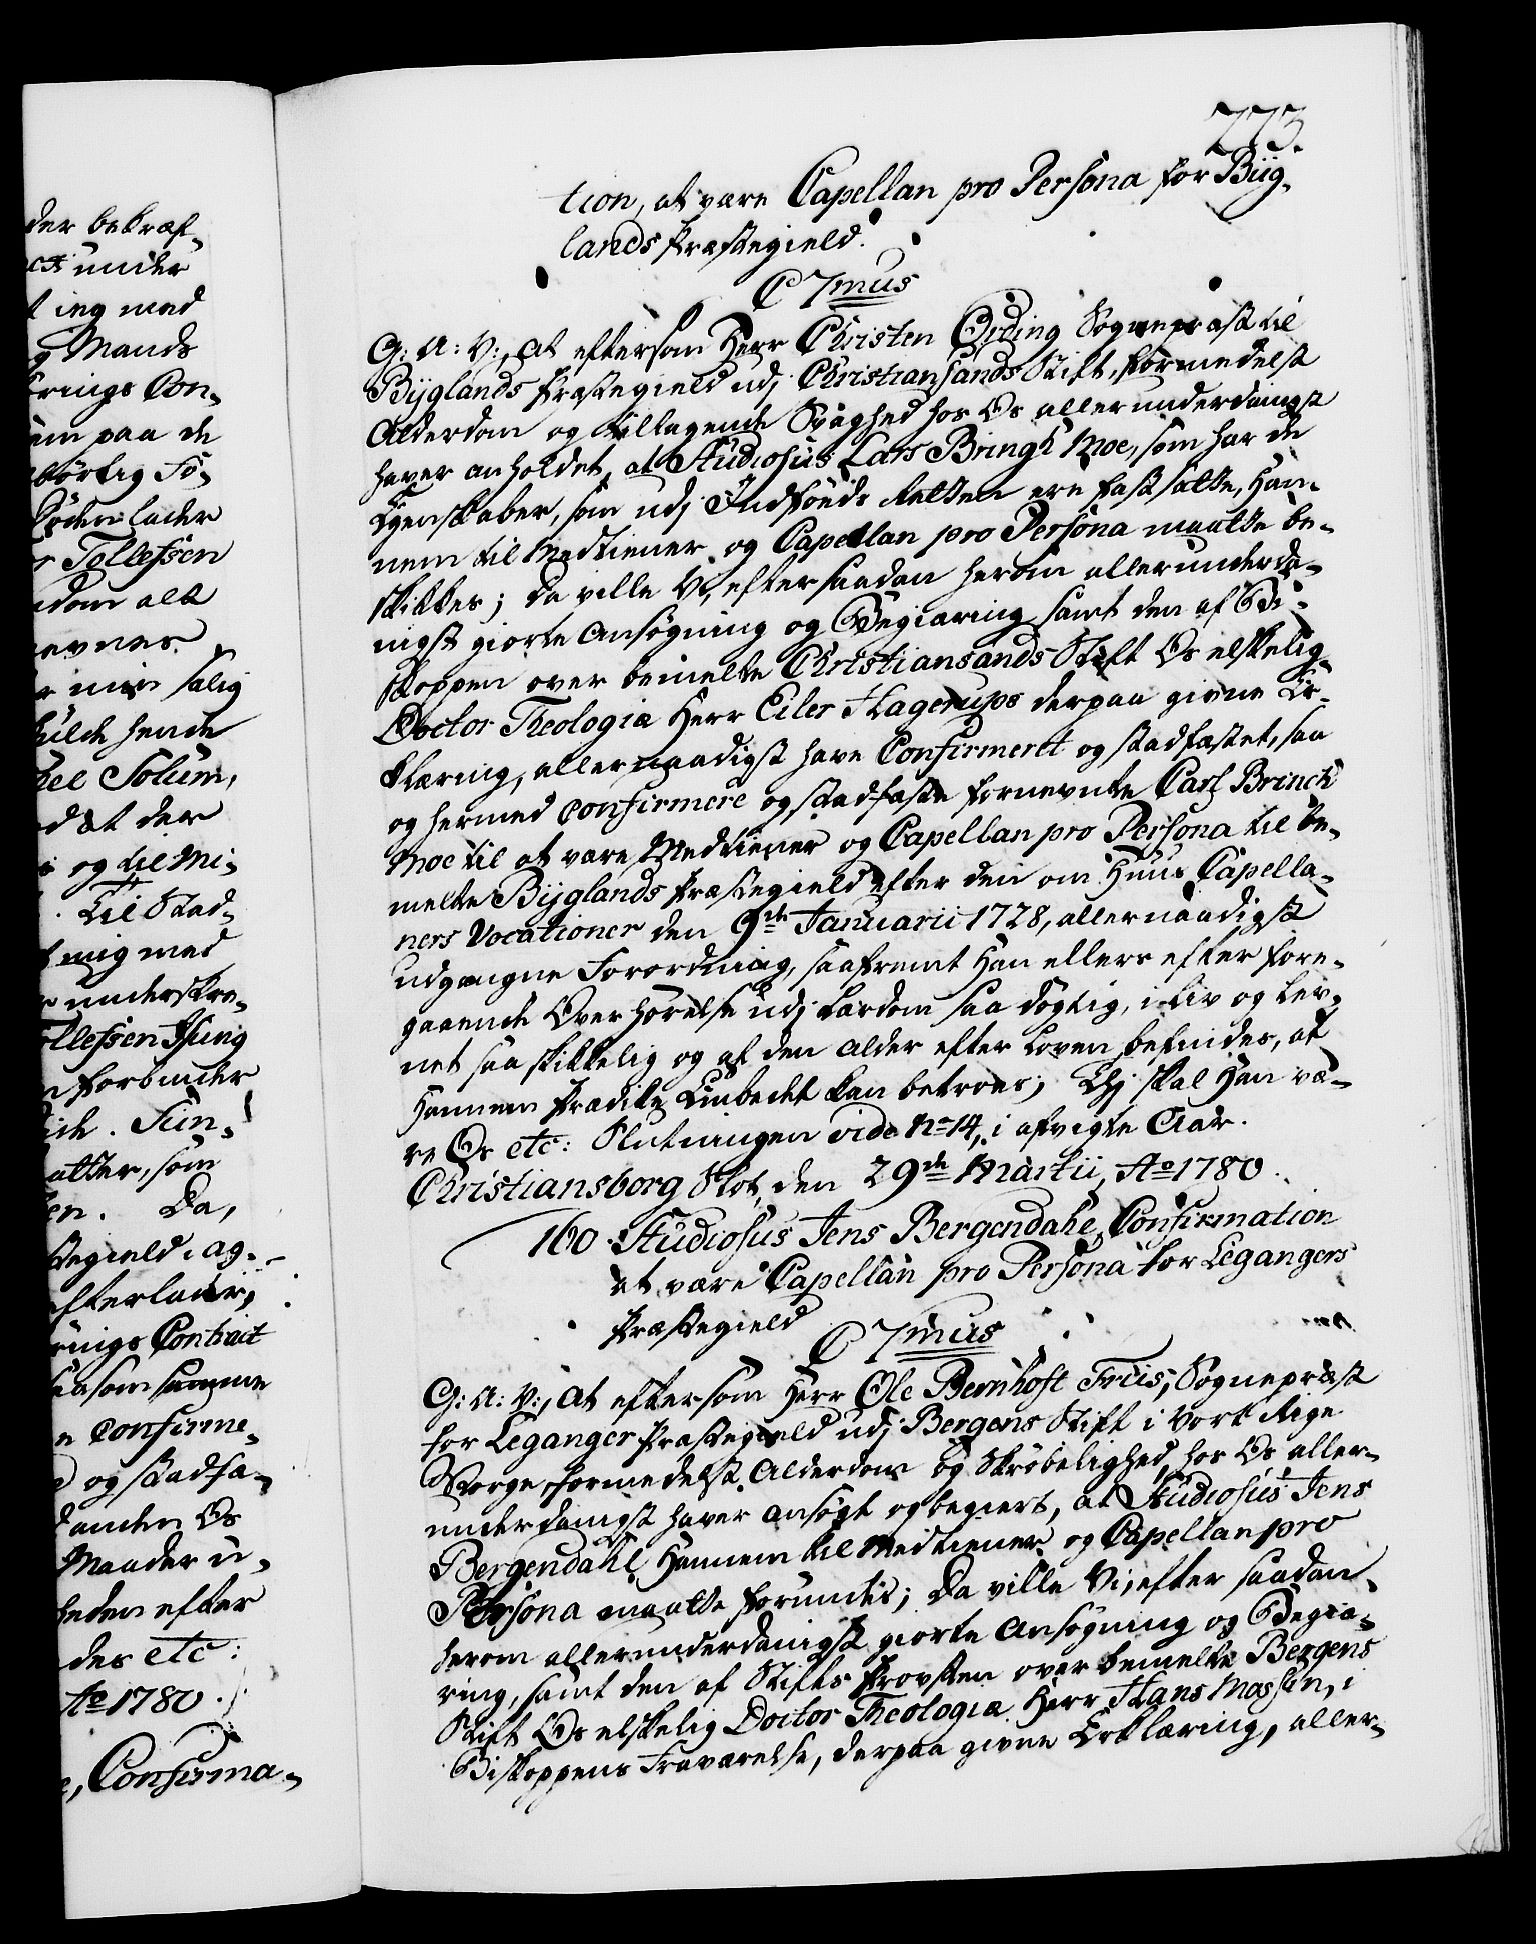 773.
tion, at være Capellan pro Persona for Byg-
lands Præstegield.
C 7mus
G: A: V:, at eftersom Herr Christen Ording Sognepræst til
Byglands Præstegield udj Christiansands Stift, formedelst
Alderdom og tiltagende Svaghed hos Os allerunderdanigst
haver anholdet, at Studiosus Lars Bringh Moe, som har de
Egenskaber, som udj Indføds Retten ere fastsatte, Han-
nem til Medtiener og Capellan pro Persona maatte be-
skikkes; da ville Vi, efter saadan herom allerunderda-
nigst giorte Ansøgning og Begiæring samt den af Bi-
skoppen over bemelte Christiansands Stift Os elskelig
Doctor Theologiæ Herr Eiler Hagerups derpaa givne Er-
klæring, allernaadigst have Confirmeret og stadfæstet, saa
og hermed confirmere og stadfæste fornevnte Carl Brinch
Moe til at være Medtiener og Capellan pro Persona til be-
melte Byglands Præstegield efter den om Huus Capella-
ners Vocationer den 9de Januarii 1728, allernaadigst
udgangne Forordning, saafremt Han ellers efter fore-
gaaende Overhørelse udj Lærdom saa dygtig, i Liv og Lev-
net saa skikkelig og af den Alder efter Loven befindes, at
Hannem Prædike Embedet kan betroes; Thj skal Han væ-
re Os etc: Slutningen vide No 14, i afvigte Aar.
Christiansborg Slot, den 29de Martii, Ao 1780.
160. Studiosus Jens Bergendahl, Confirmation
at være Capellan pro Persona for Legangers
Præstegield
C 7mus
G: A: V:, at eftersom Herr Ole Bernhoft Friis, Sognepræst
for Leganger Præstegield udj Bergens Stift i Vort Rige
Norge, formedelst Alderdom og Skrøbelighed, hos Os aller-
underdanigst haver ansøgt og begiert, at Studiosus Jens
Bergendahl Hannem til Medtiener og Capellan pro
Persona maatte forundes; Da ville Vi, efter saadan
herom allerunderdanigst giorte Ansøgning og Begiæ-
ring, samt den af Stifts Provsten over bemelte Bergens
Stift Os elskelig Doctor Theologiæ Herr Hans Mossin, i
Biskoppens Fraværelse, derpaa givne Erklæring, aller-
der bekræf-
under
ieg med
Mands
Con-
paa de
lader
Tollefsen
alt
min salig
hende
Solum,
at der
og til Mi-
Til Stad-
mig med
underskre-
forbinder
som
Da,
efterlader,
Contract
saasom samme
confirme-
og stadfæ-
anden Os
Maader u-
heden efter
des etc:
Ao 1780.
Confirma-